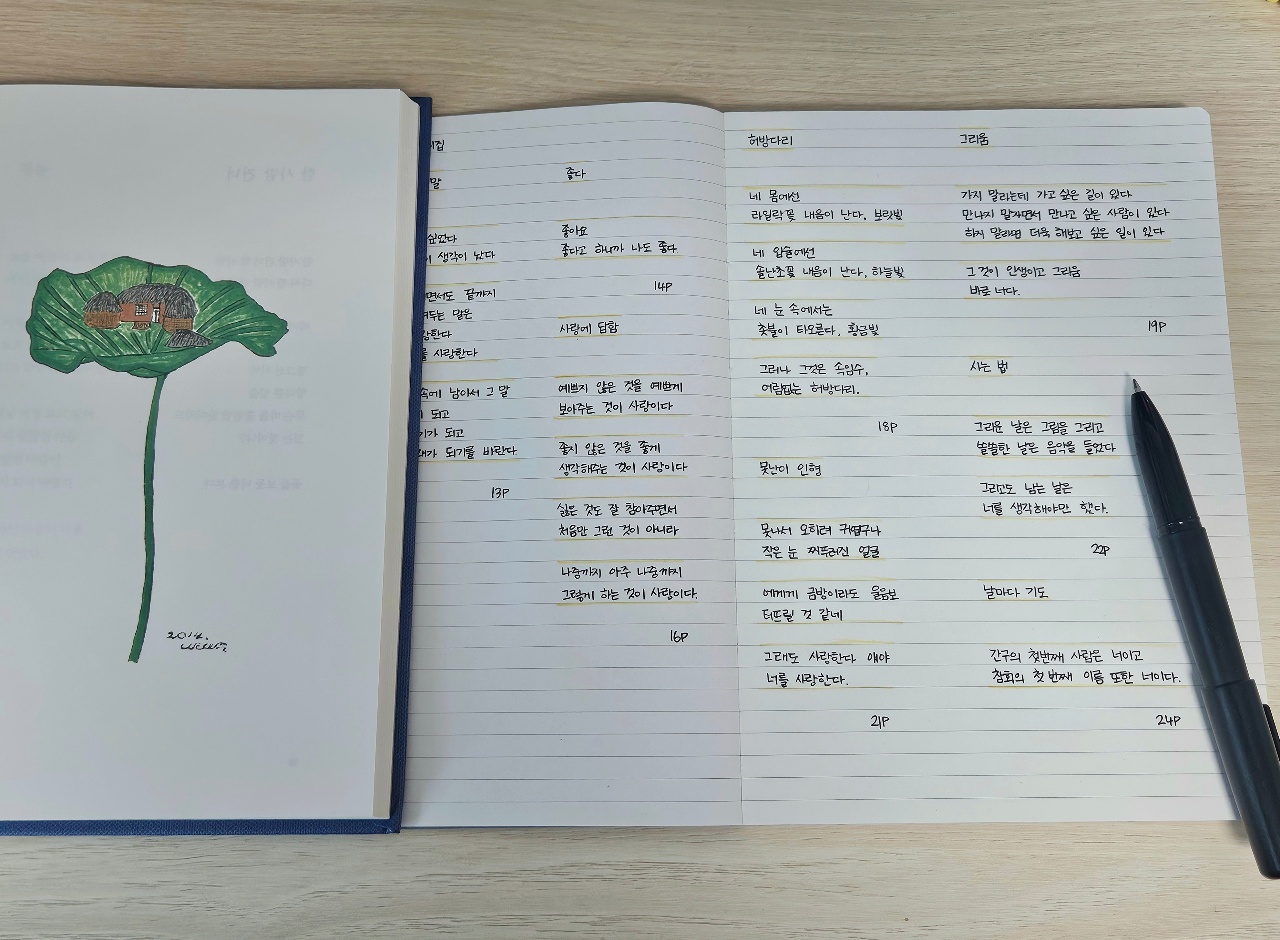 2014.
말
싶었다
생각이 났다
면서도 끝까지
말은
사랑한다
속에 남아서 그 말
되고
되고
되기를 바란다
13P
좋다
좋아요
좋다고 하니까 나도 좋다.
14P
사랑에 답함
예쁘지 않은 것을 예쁘게
보아주는 것이 사랑이다
좋지 않은 것을 좋게
생각해주는 것이 사랑이다
싫은 것도 잘 참아주면서
처음만 그런 것이 아니라
나중까지 아주 나중까지
그렇게 하는 것이 사랑이다.
16P
허방다리
네 몸에선
라일락꽃 내음이 난다, 보랏빛
네 입술에선
솔난초꽃 내음이 난다, 하늘빛
네 눈 속에서는
촛불이 타오른다, 황금빛
그러나 그것은 속임수,
어림없는 허방다리.
18P
못난이 인형
못나서 오히려 귀엽구나
작은 눈 찌푸려진 얼굴
에게게 금방이라도 울음보
터뜨릴 것 같네
그래도 사랑한다 얘야
너를 사랑한다.
21P
그리움
가지 말라는데 가고 싶은 길이 있다
만나지 말자면서 만나고 싶은 사람이 있다
하지 말라면 더욱 해보고 싶은 일이 있다
그것이 인생이고 그리움
바로 너다.
19P
사는 법
그리운 날은 그림을 그리고
쓸쓸한 날은 음악을 들었다
그리고도 남는 날은
너를 생각해야만 했다.
22P
날마다 기도
간구의 첫번째 사람은 너이고
참회의 첫번째 이름 또한 너이다.
24P